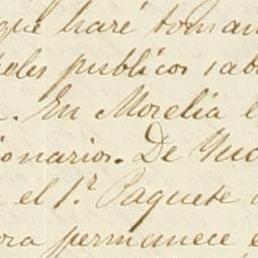 que haré toman
peles publicos sab
. En Morelia e
ionarios. De
el 1.r Paquete
ora permanece e